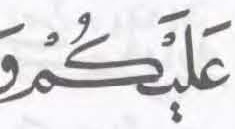 عَلَيْكُمْ وَ